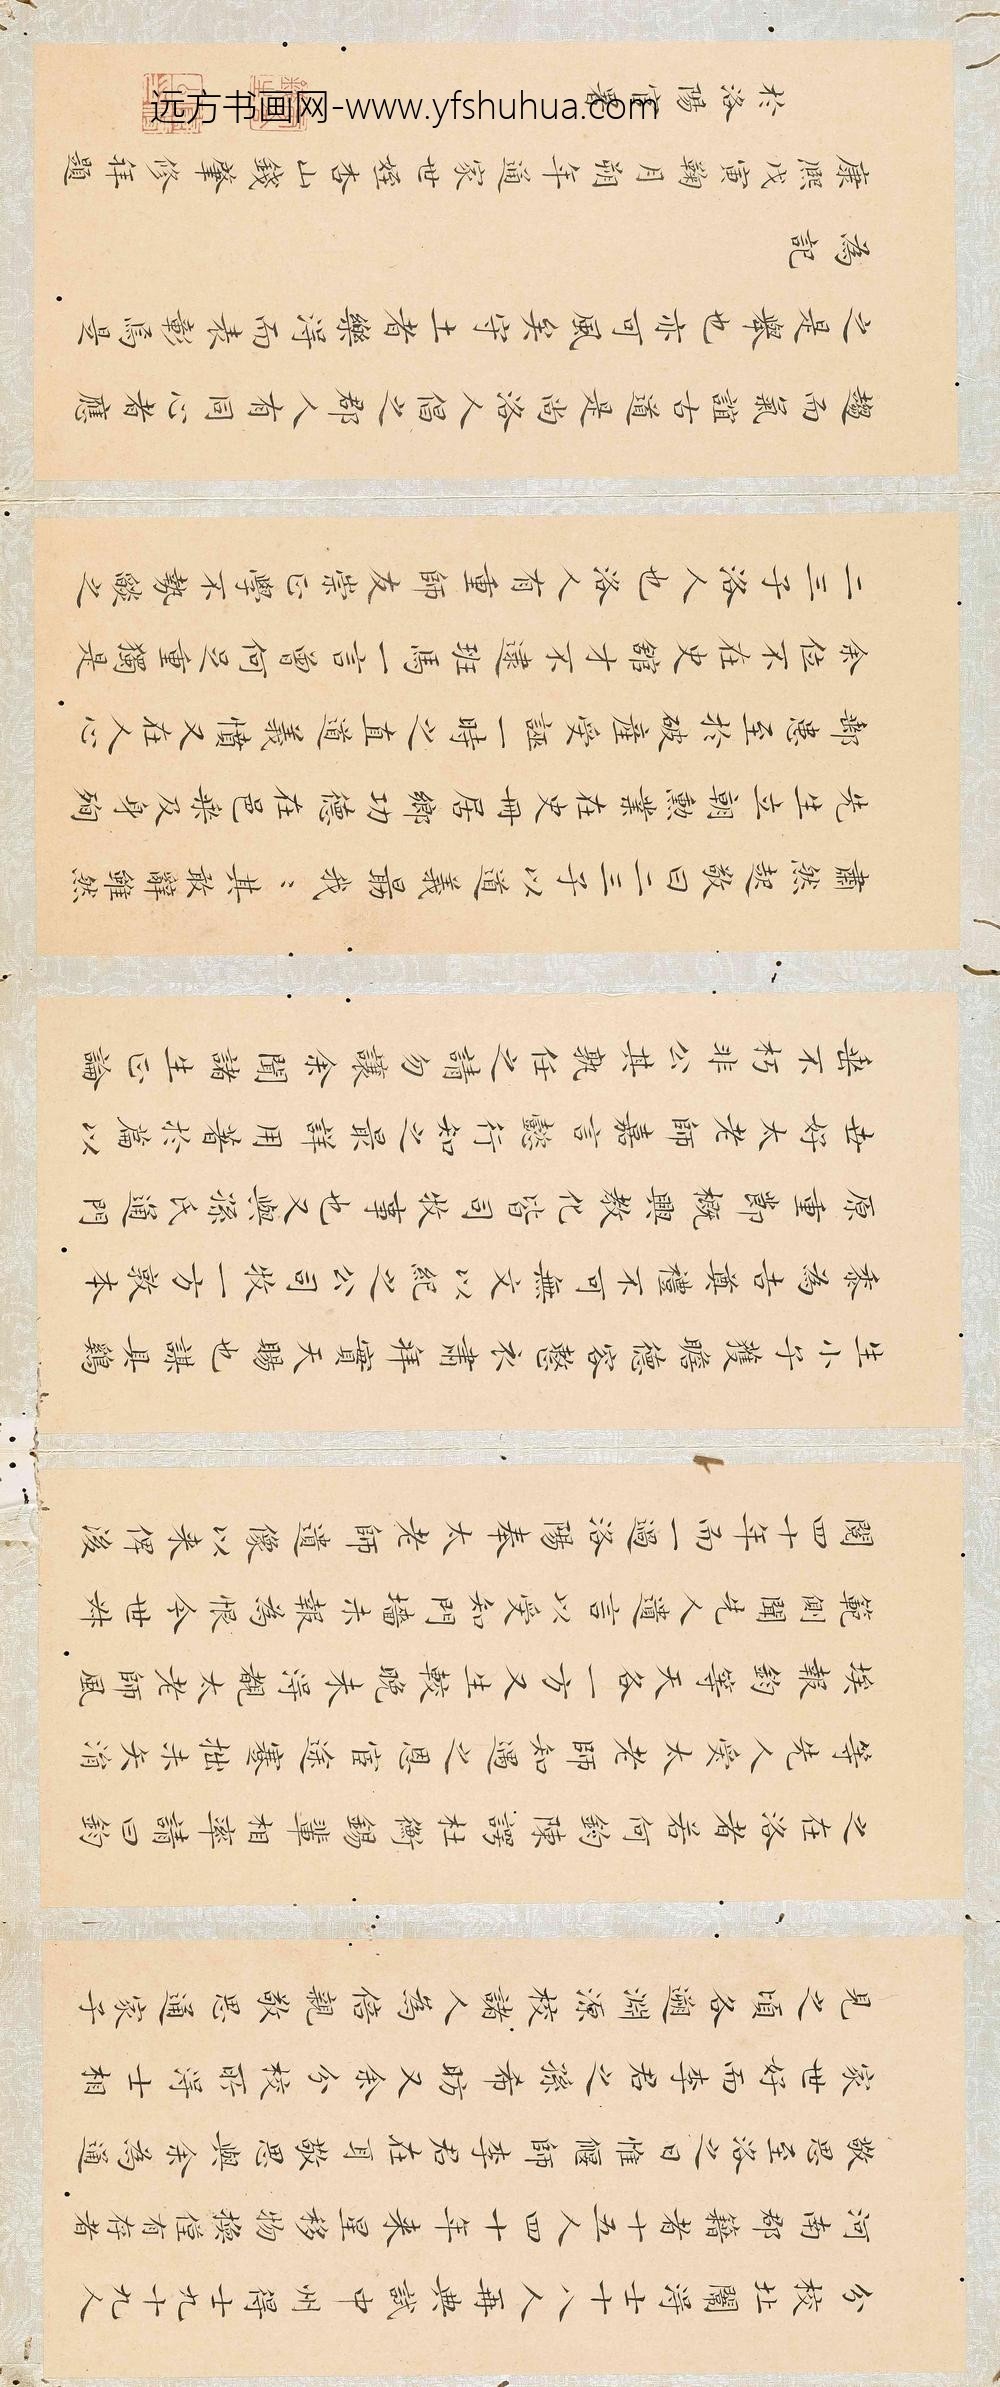 分校北闈得士十八人再典試中州得士九十九人
河南郡籍者十五人四十年來星移物換僅有存者
敬思至洛之日惟偃師李君在耳敬思與余為通
家世好而李君之孫希昉又余分校所得士相
見之頃各遡淵源校諸人為倍親敬思通家子
之在洛者若何鈞陳諤杜衡錫輩相率請曰鈞
等先人受太老師知遇之恩宦途蹇拙未矢涓
埃報鈞等天各一方又生較晚未得覩太老師風
範側聞先人遺言以受知門墻未報為恨今世妹
閱四十年而一過洛陽奉太老師遺像以来俾後
生小子獲瞻德容衣肅拜實天賜也謀具鷄
黍為吉奠禮不可無文以紀之公司牧一方敦本
原重節概興教化皆司牧事也又與孫氏通門
世好太老師嘉言懿行知之最詳用著於篇以
垂不朽非公其孰任之請勿讓余聞諸生正論
肅然起敬曰二三子以道義勗我〻其敢辭雖然
先生立朝勳業在史冊居鄉功德在邑乘及身殉
鄉患至於破產受誣一時之直道義憤又在人心
余位不在史舘才不逮班馬一言曾何足重獨是
二三子洛人也洛人有重師友崇正學不勢燄之
趨而氣誼古道是尚洛人倡之郡人有同心者應
之是舉也亦可風矣守土者樂得而表彰焉是
為記
康熙戊寅鞠月朔年通家世姪杏山錢肇修拜題
於洛陽官署
远方书画网-www.yfshuhua.com